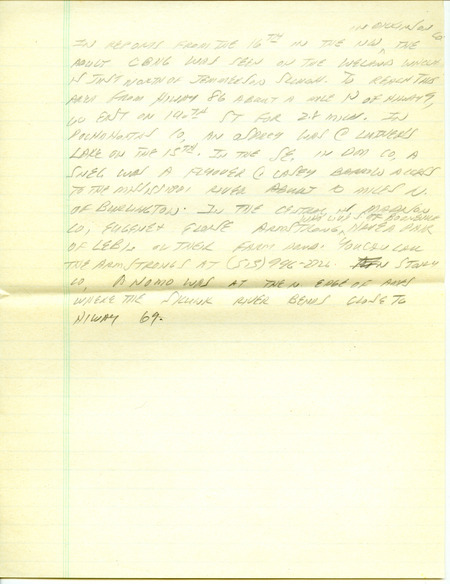 IN DICKINSON CO.
IN REPORTS FROM THE 16TH IN THE NW, THE
ADULT COHG WAS SEEN ON THE WELAND WHICH
IS JUST NORTH OF JEMMERSON SLOUGH. TO REACH THIS
AREA FROM HIWAY 86 ABOUT A MILE N OF HIWAY 9,
GO EAST ON 140TH ST FOR 2.8 MILES. IN
POCAHONTAS CO, AN OSPREY WAS @ LIZARD
LAKE ON THE 15TH. IN THE SE, IN DM CO, A
SNEG WAS A FLYOVER @ CASEY BARROW ACCESS
TO THE MISSISSIPPI RIVER ABOUT 10 MILES N.
OF BURLINGTON. IN THE CENTRAL, IN MARION
CO, EUGENE & ELOISE ARMSTRONG, HAVE A PAIR
WHO LIVE S OF
OF LEBI'S ON THEIR FARM POND. YOU CAN CALL
THE ARMSTRONGS AT (515) 996-2226. IN STORY
CO, A NOMO WAS AT THE N EDGE OF AMES
WHERE THE SKUNK RIVER BENDS CLOSE TO
HIWAY 69.